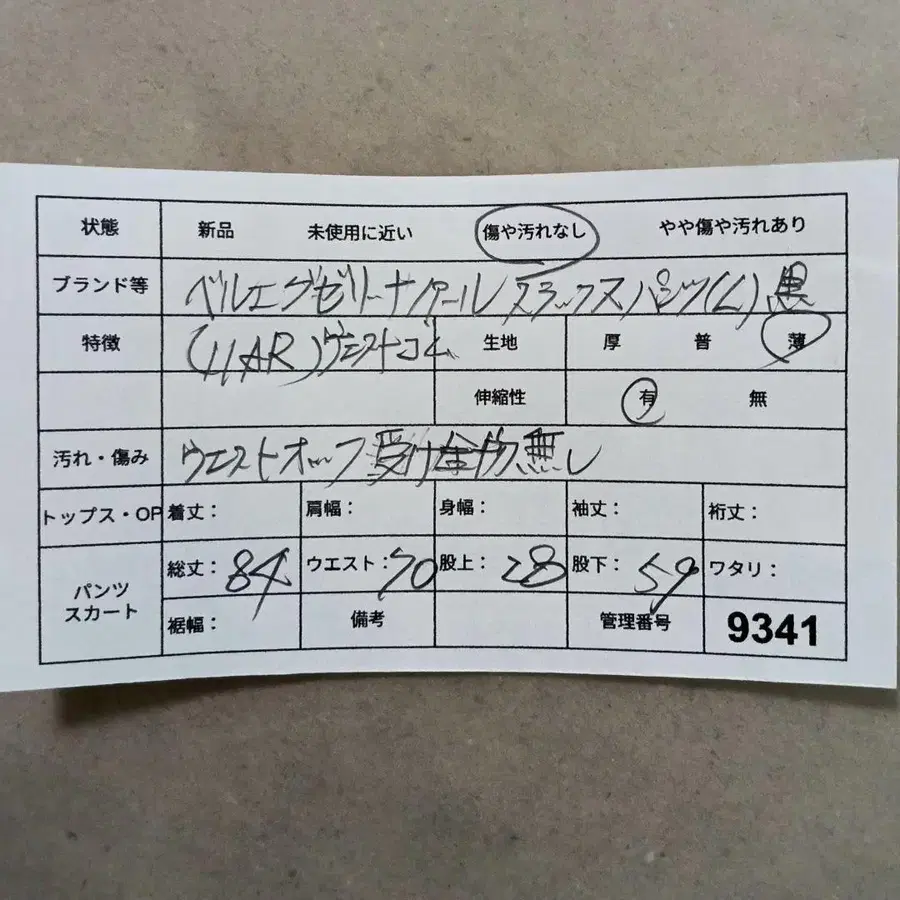 状態 新品 未使用に近い 傷や汚れなし やや傷や汚れあり
ブランド等 ベルエグゼリーナノアール スラックスパンツ(L) 黒
特徴 (11AR)ウエストゴム 生地 厚 普 薄
伸縮性 有 無
汚れ・傷み ウエストホック受け金物無し
トップス・OP 着丈： 肩幅： 身幅： 袖丈： 裄丈：
パンツ スカート 総丈：84 ウエスト：70 股上：28 股下：59 ワタリ：
裾幅： 備考 管理番号 9341